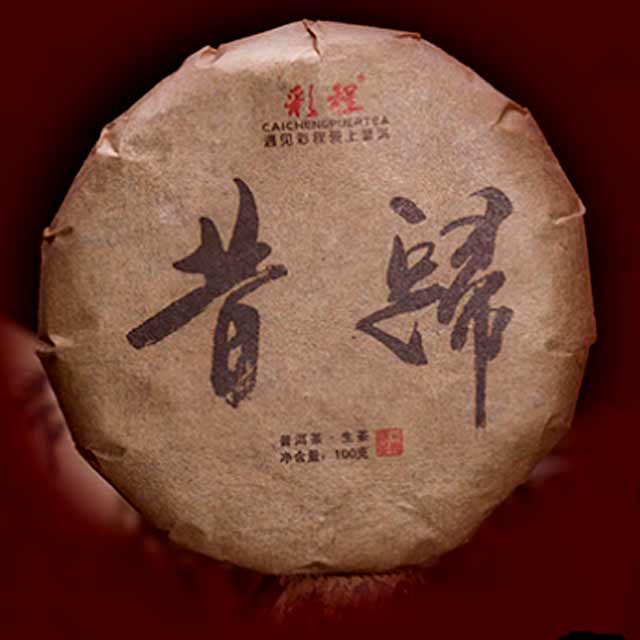 彩程®
CAICHENGPUERTEA
遇见彩程爱上普洱
昔歸
普洱茶·生茶
净含量：100克